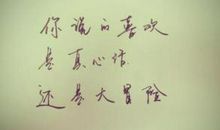 你说的喜欢
是真心话
还是大冒险